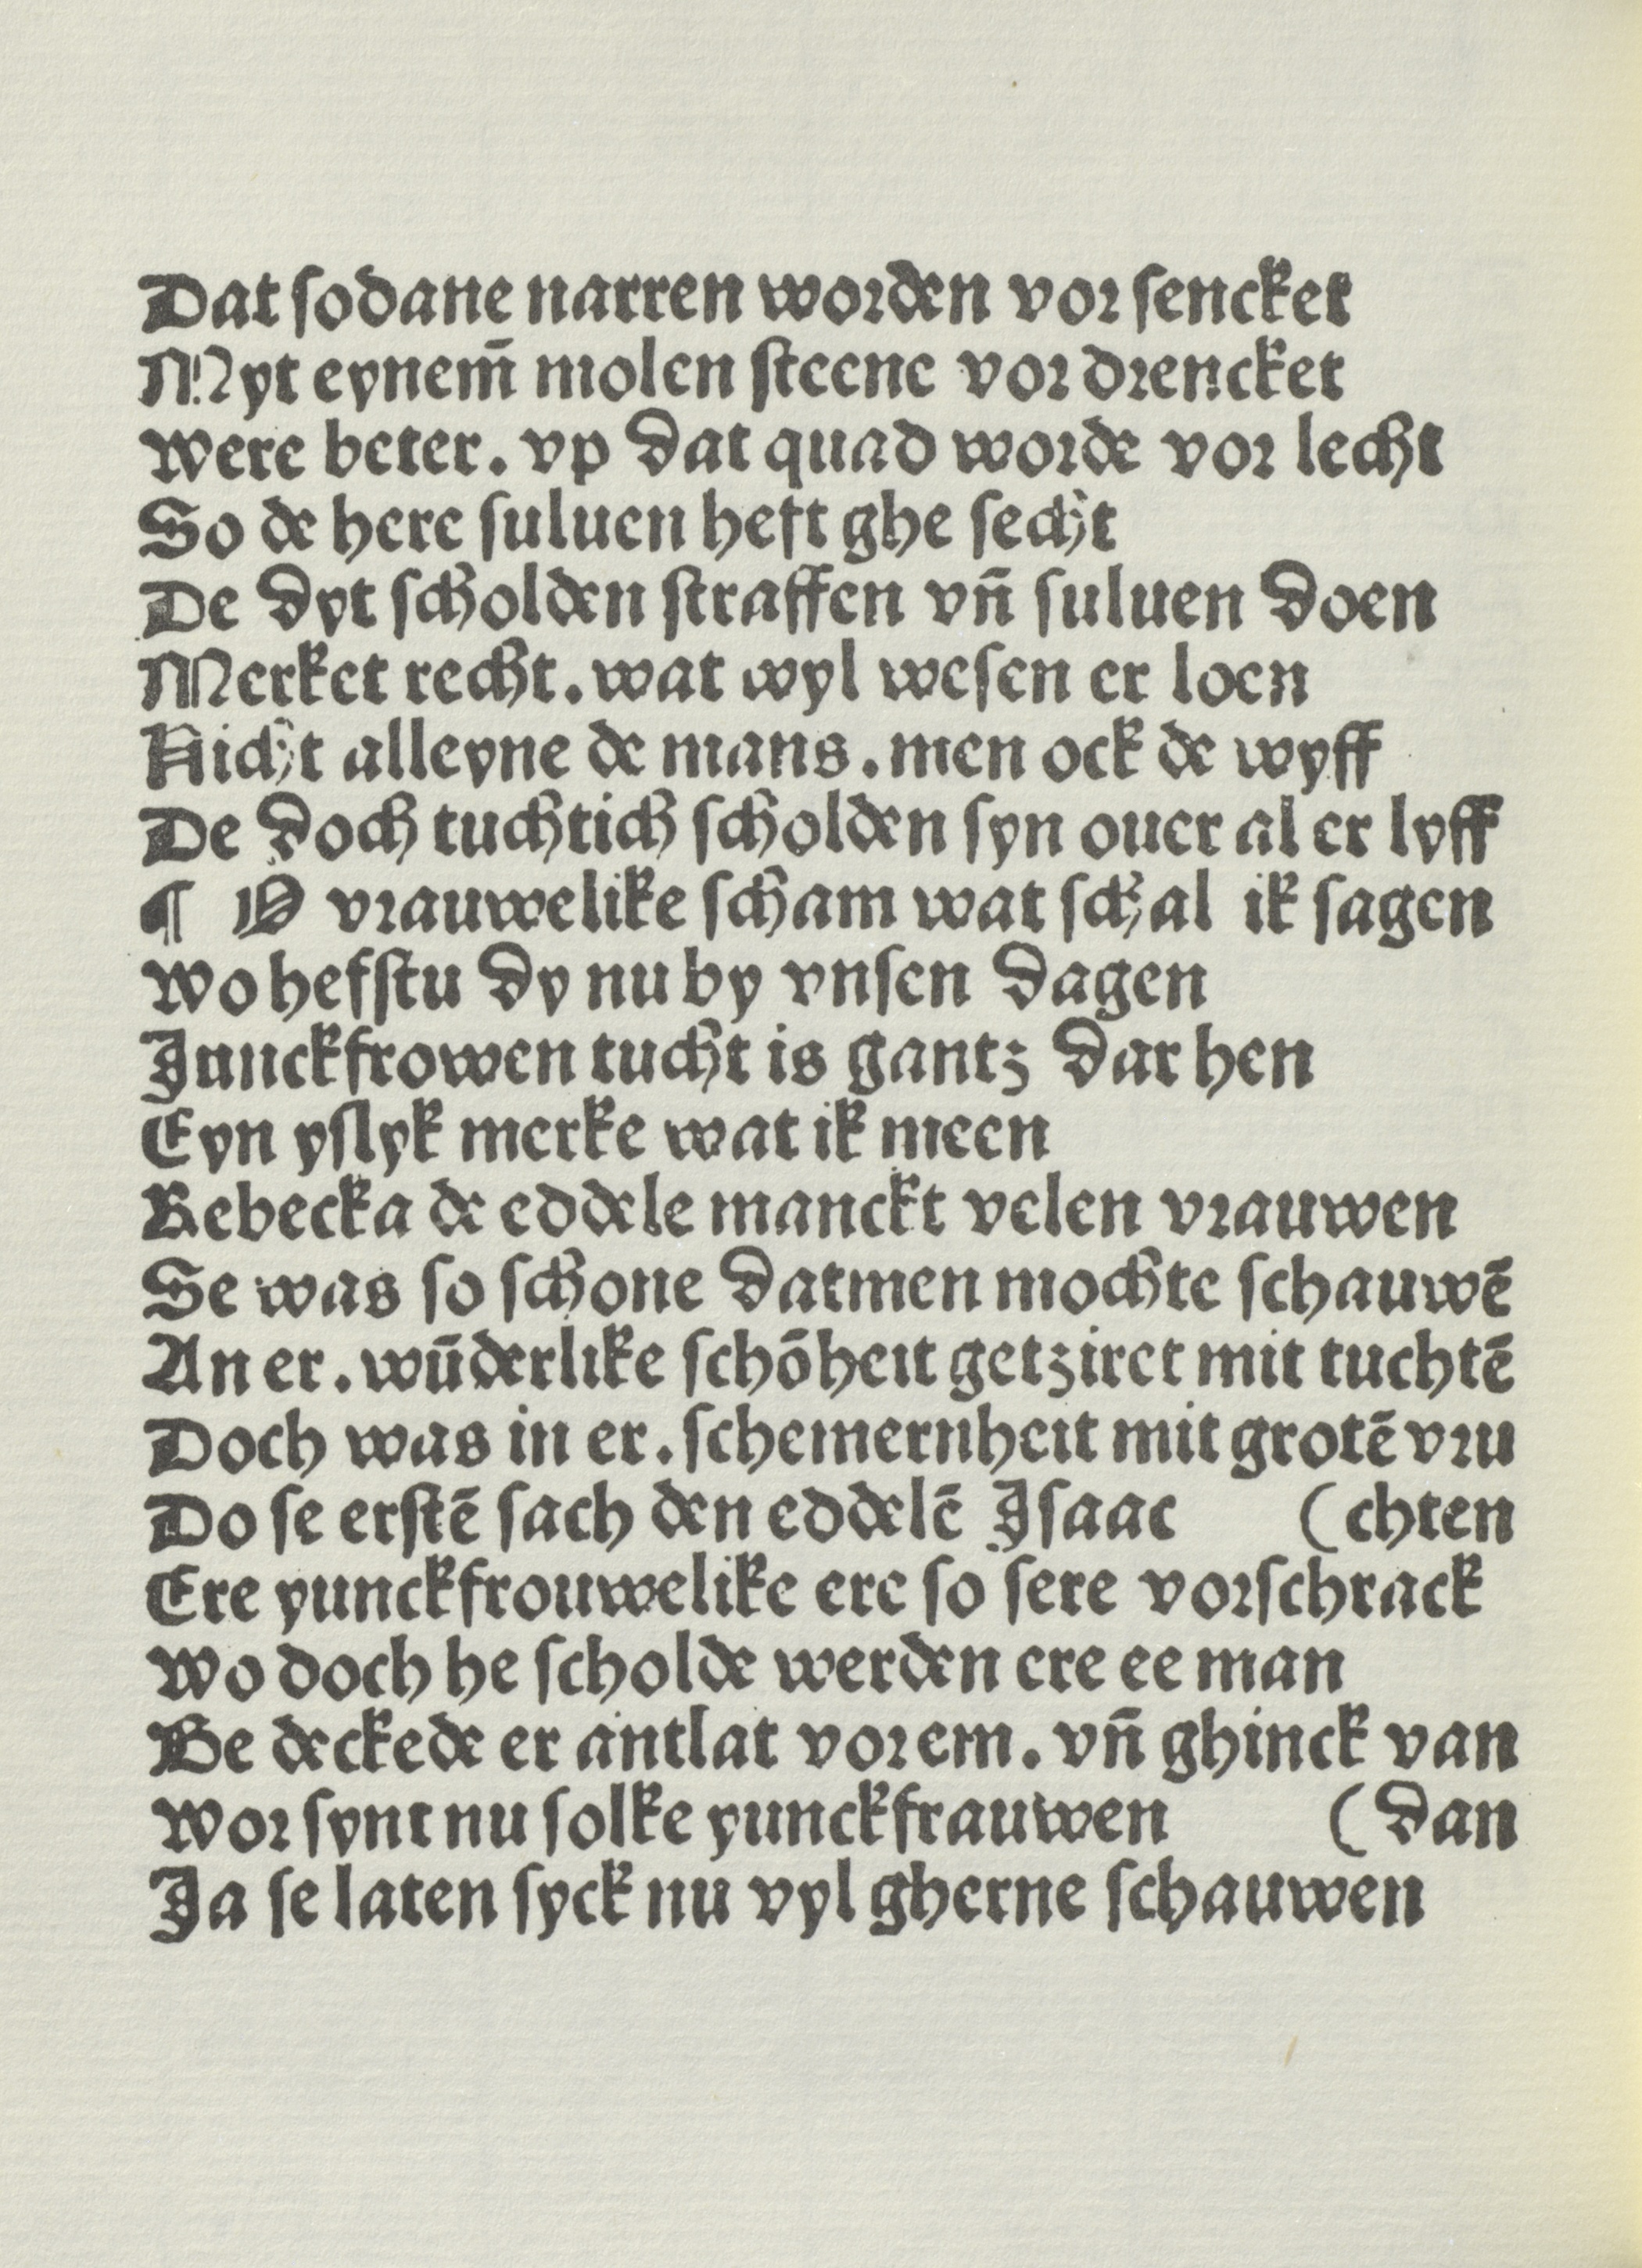 Dat sodane narren worden vor sencket
Myt eynem̄ molen steene vor drencket
were beter. vp dat quad worde vor lecht
So de here suluen heft ghe secht
De dyt scholden straffen vn̄ suluen doen
Merket recht. wat wyl wesen er loen
Nicht alleyne de mans. men ock de wyff
De doch tuchtich scholden syn ouer al er lyff
¶ O vrauwelike scham wat schal ik sagen
wo hefstu dy nu by vnsen dagen
Junckfrowen tucht is gantz dar hen
Eyn yslyk merke wat ik meen
Rebecka de eddele manckt velen vrauwen
Se was so schone datmen mochte schauwē
An er. wūderlike schōheit getziret mit tuchtē
Doch was in er. schemernheit mit grotē vru
Do se erstē sach den eddelē Isaac (chten
Ere yunckfrouwelike ere so sere vorschrack
wo doch he scholde werden ere ee man
Se deckede er antlat vor em. vn̄ ghinck van
wor synt nu solke yunckfrauwen (dan
Ja se laten syck nu vyl gherne schauwen